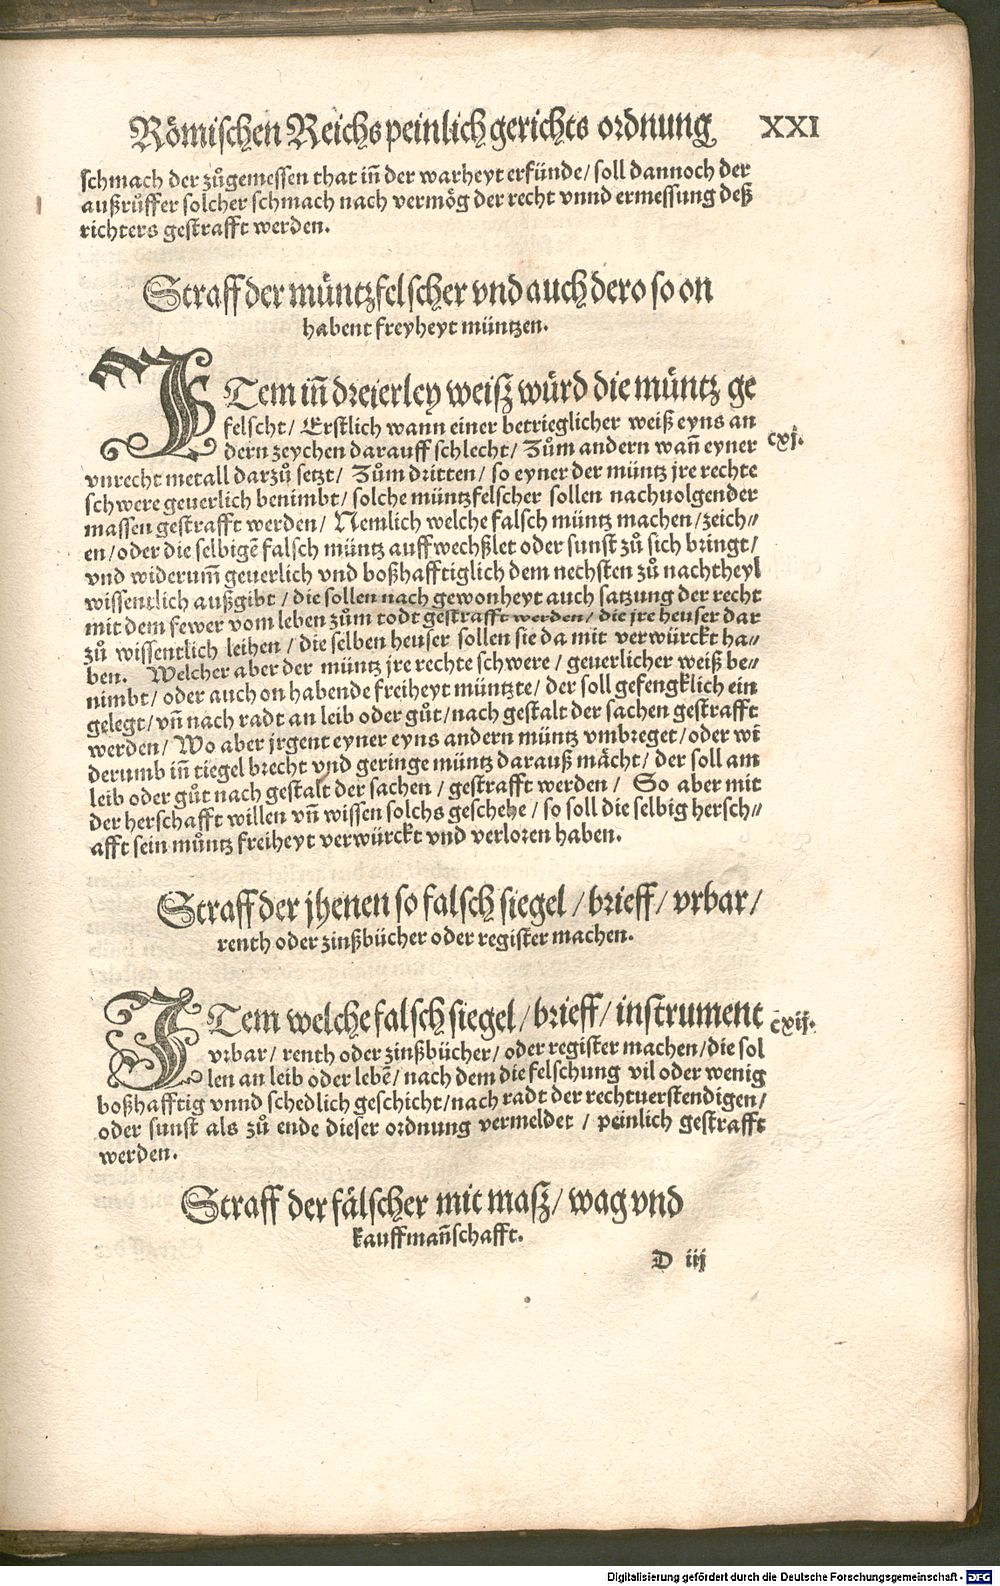 Römischen Reichs peinlich gerichts ordnung XXI
schmach der zůgemessen that iñ der warheyt erfünde/ soll dannoch der
außrůffer solcher schmach nach vermög der recht vnnd ermessung deß
richters gestrafft werden.
Straff der müntzfelscher vnd auch dero so on
habent freyheyt müntzen.
ITem iñ dreierley weisz würd die müntz ge
felscht/ Erstlich wann einer betrieglicher weiß eyns an
dern zeychen darauff schlecht/ Zům andern wañ eyner cxj.
vnrecht metall darzů setzt/ Zům dritten/ so eyner der müntz jre rechte
schwere geuerlich benimbt/ solche müntzfelscher sollen nachuolgender
massen gestrafft werden/ Nemlich welche falsch müntz machen/ zeich⸗
en/ oder die selbigẽ falsch müntz auffwechßlet oder sunst zů sich bringt/
vnd widerum̃ geuerlich vnd boßhafftiglich dem nechsten zů nachtheyl
wissentlich außgibt/ die sollen nach gewonheyt auch satzung der recht
mit dem fewer vom leben zům todt gestrafft werden/ die jre heuser dar
zů wissentlich leihen/ die selben heuser sollen sie da mit verwürckt ha⸗
ben. Welcher aber der müntz jre rechte schwere/ geuerlicher weiß be⸗
nimbt/ oder auch on habende freiheyt müntzte/ der soll gefengklich ein
gelegt/ vñ nach radt an leib oder gůt/ nach gestalt der sachen gestrafft
werden/ Wo aber jrgent eyner eyns andern müntz vmbreget/ oder wi
derumb iñ tiegel brecht vnd geringe müntz darauß mächt/ der soll am
leib oder gůt nach gestalt der sachen/ gestrafft werden/ So aber mit
der herschafft willen vñ wissen solchs geschehe/ so soll die selbig hersch⸗
afft sein müntz freiheyt verwürckt vnd verloren haben.
Straff der jhenen so falsch siegel/ brieff/ vrbar/
renth oder zinßbücher oder register machen.
ITem welche falsch siegel/ brieff/ instrument cxij.
vrbar/ renth oder zinßbücher/ oder register machen/ die sol
len an leib oder lebẽ/ nach dem die felschung vil oder wenig
boßhafftig vnnd schedlich geschicht/ nach radt der rechtuerstendigen/
oder sunst als zů ende dieser ordnung vermeldet/ peinlich gestrafft
werden.
Straff der fälscher mit masz/ wag vnd
kauffmañschafft.
D iij
Digitalisierung gefördert durch die Deutsche Forschungsgemeinschaft - DFG